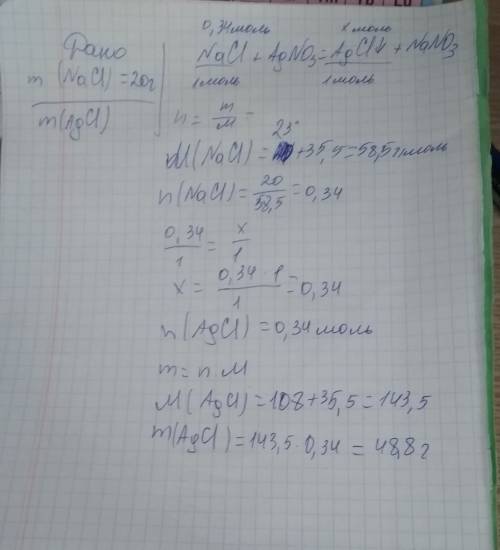 Дано
m (NaCl) = 20г
m(AgCl)
0,34 моль x моль
NaCl + AgNO3 = AgCl↓ + NaNO3
1 моль 1 моль
n = m/M
M(NaCl) = 23 + 35,5 = 58,5 г/моль
n(NaCl) = 20/58,5 = 0,34
0,34/1 = x/1
x = 0,34 · 1/1 = 0,34
n(AgCl) = 0,34 моль
m = n · M
M(AgCl) = 108 + 35,5 = 143,5
m(AgCl) = 143,5 · 0,34 = 48,8 г